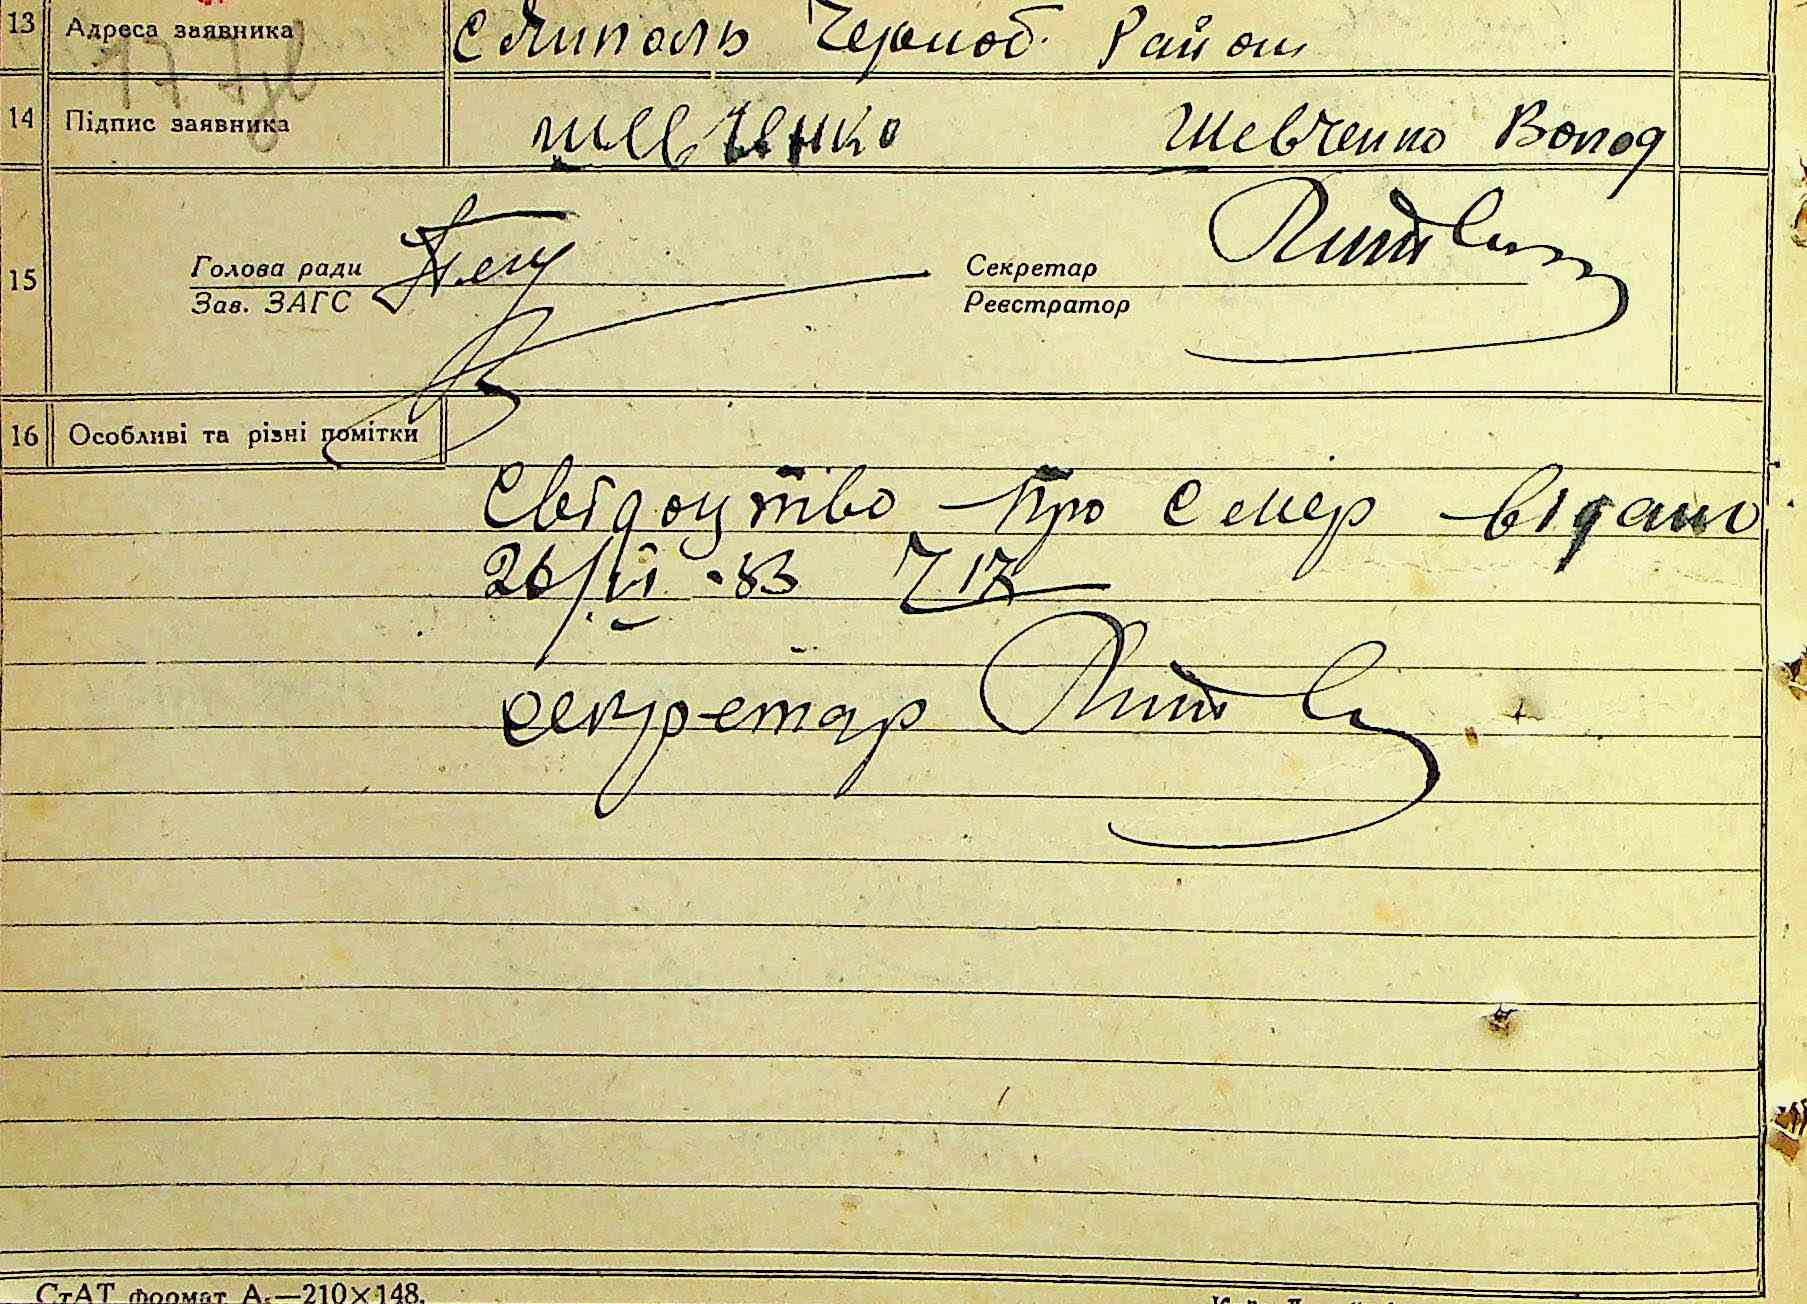 13 Адреса заявника с Липоль Чорноб. Район
14 Підпис заявника Шевченко Шевченко Волод
15 Голова ради Секретар
Зав. ЗАГС Реєстратор
16 Особливі та різні помітки
Свідоцтво про смер видано
26/VI - 83 717
секретар
СтАТ формат А₅—210×148.